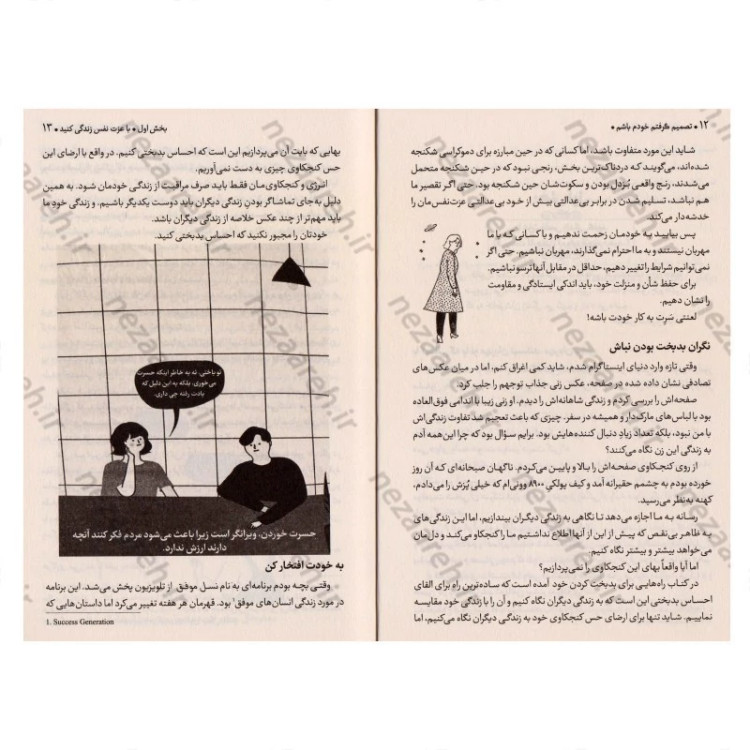 ۱۲ • تصمیم گرفتم خودم باشم •
شاید این مورد متفاوت باشد، اما کسانی که در حین مبارزه برای دموکراسی شکنجه
شده‌اند، می‌گویند که دردناک‌ترین بخش، رنجی نبود که در حین شکنجه متحمل
می‌شدند، رنج واقعی بُزدل بودن و سکوت‌شان حین شکنجه بود. حتی اگر تقصیر ما
هم نباشد، تسلیم شدن در برابر بی‌عدالتی بیش از خود بی‌عدالتی عزت‌نفس‌مان را
خدشه‌دار می‌کند.
پس بیایید به خودمان زحمت ندهیم و با کسانی که با ما
مهربان نیستند و به ما احترام نمی‌گذارند، مهربان نباشیم. حتی اگر
نمی‌توانیم شرایط را تغییر دهیم، حداقل در مقابل آنها ترسو نباشیم.
برای حفظ شأن و منزلت خود، باید اندکی ایستادگی و مقاومت
را نشان دهیم.
لعنتی سَرِت به کار خودت باشه!
نگران بدبخت بودن نباش
وقتی تازه وارد دنیای اینستاگرام شدم، شاید کمی اغراق کنم، اما در میان عکس‌های
تصادفی نشان داده شده در صفحه، عکس زنی جذاب توجهم را جلب کرد.
صفحه‌اش را بررسی کردم و زندگی شاهانه‌اش را دیدم. او زنی زیبا با اندامی فوق‌العاده
بود با لباس‌های مارک‌دار و همیشه در سفر. چیزی که باعث تعجبم شد تفاوت زندگی‌اش
با من نبود، بلکه تعداد زیادِ دنبال کننده‌هایش بود. برایم سؤال بود که چرا این‌همه آدم
به زندگی این زن نگاه می‌کنند؟
از روی کنجکاوی صفحه‌اش را بالا و پایین می‌کردم. ناگهان صبحانه‌ای که آن روز
خورده بودم به چشمم حقیرانه آمد و کیف پولکی ۸۹۰۰ وونی‌ام که خیلی پُزش را می‌دادم،
کهنه به‌نظر می‌رسید.
رسانه به ما اجازه می‌دهد تا نگاهی به زندگی دیگران بیندازیم، اما این زندگی‌های
به ظاهر بی‌نقص که پیش از این از آنها اطلاع نداشتیم ما را کنجکاو می‌کند و دل‌مان
می‌خواهد بیشتر و بیشتر نگاه کنیم.
اما آیا واقعاً بهای این کنجکاوی را نمی‌پردازیم؟
در کتاب راه‌هایی برای بدبخت کردن خود آمده است که ساده‌ترین راه برای القای
احساس بدبختی این است که به زندگی دیگران نگاه کنیم و آن را با زندگی خود مقایسه
نماییم. شاید تنها برای ارضای حس کنجکاوی خود به زندگی دیگران نگاه می‌کنیم، اما
بخش اول • با عزت نفس زندگی کنید • ۱۳
بهایی که بابت آن می‌پردازیم این است که احساس بدبختی کنیم. در واقع با ارضای این
حس کنجکاوی چیزی به دست نمی‌آوریم.
انرژی و کنجکاوی‌مان فقط باید صرف مراقبت از زندگی خودمان شود. به همین
دلیل به‌جای تماشاگر بودنِ زندگی دیگران باید دوست یکدیگر باشیم. و زندگی خودِ ما
باید مهم‌تر از چند عکس خلاصه از زندگی دیگران باشد.
خودتان را مجبور نکنید که احساس بدبختی کنید.
تو باختی. نه به خاطر اینکه حسرت
می‌خوری، بلکه به این دلیل که
یادت رفته چی داری.
حسرت خوردن، ویرانگر است زیرا باعث می‌شود مردم فکر کنند آنچه
دارند ارزش ندارد.
به خودت افتخار کن
وقتی بچه بودم برنامه‌ای به نام نسل موفق۱ از تلویزیون پخش می‌شد. این برنامه
در مورد زندگی انسان‌های موفق بود. قهرمان هر هفته تغییر می‌کرد اما داستان‌هایی که
1. Success Generation
nezaareh.ir